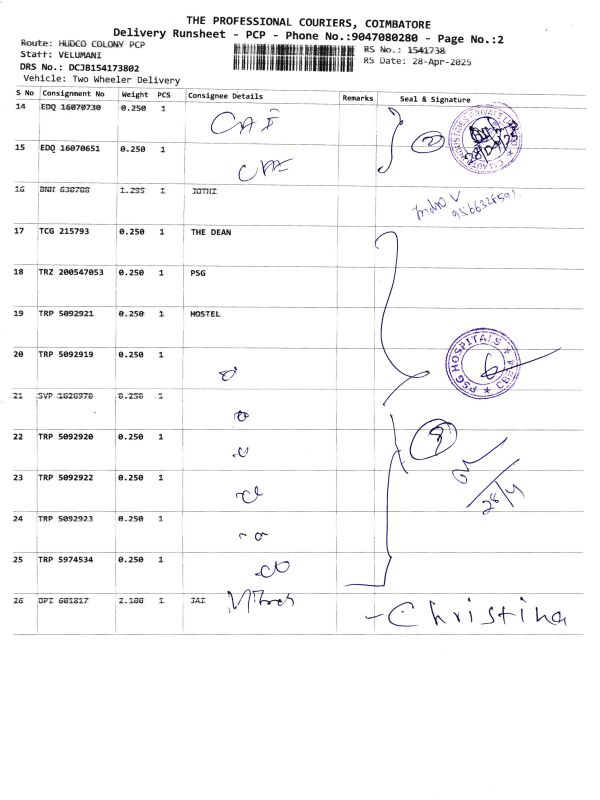 THE PROFESSIONAL COURIERS, COIMBATORE
Delivery Runsheet - PCP - Phone No.:9047080280 - Page No.:2
Route: HUDCO COLONY PCP
Staff: VELUMANI
DRS No.: DCJB154173802
Vehicle: Two Wheeler Delivery
RS No.: 1541738
RS Date: 28-Apr-2025
S No Consignment No Weight PCS Consignee Details Remarks Seal & Signature
14 EDQ 16070730 0.250 1
15 EDQ 16070651 0.250 1
16 BNH 630708 1.295 1 JOTHI
9566328591
17 TCG 215793 0.250 1 THE DEAN
18 TRZ 200547053 0.250 1 PSG
19 TRP 5092921 0.250 1 HOSTEL
20 TRP 5092919 0.250 1
PSG HOSPITALS
21 SVP 1626970 0.250 1
22 TRP 5092920 0.250 1
23 TRP 5092922 0.250 1
28/4
24 TRP 5092923 0.250 1
25 TRP 5974534 0.250 1
26 OPI 601817 2.100 1 JAI
- Christina